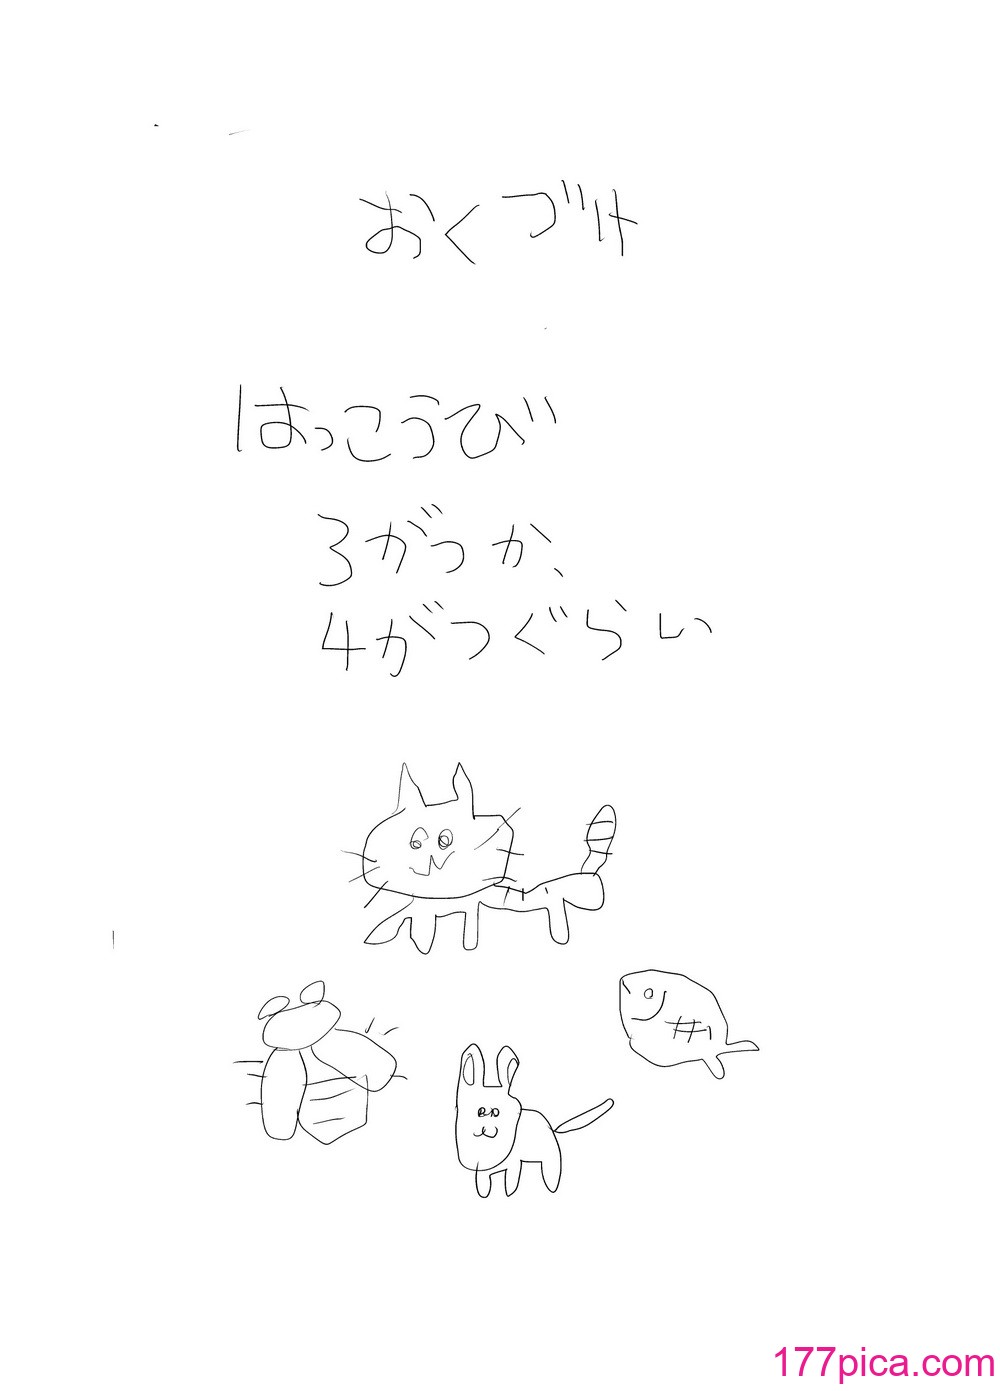 おくづけ
はっこうび
3がつか、
4がつぐらい
177pica.com